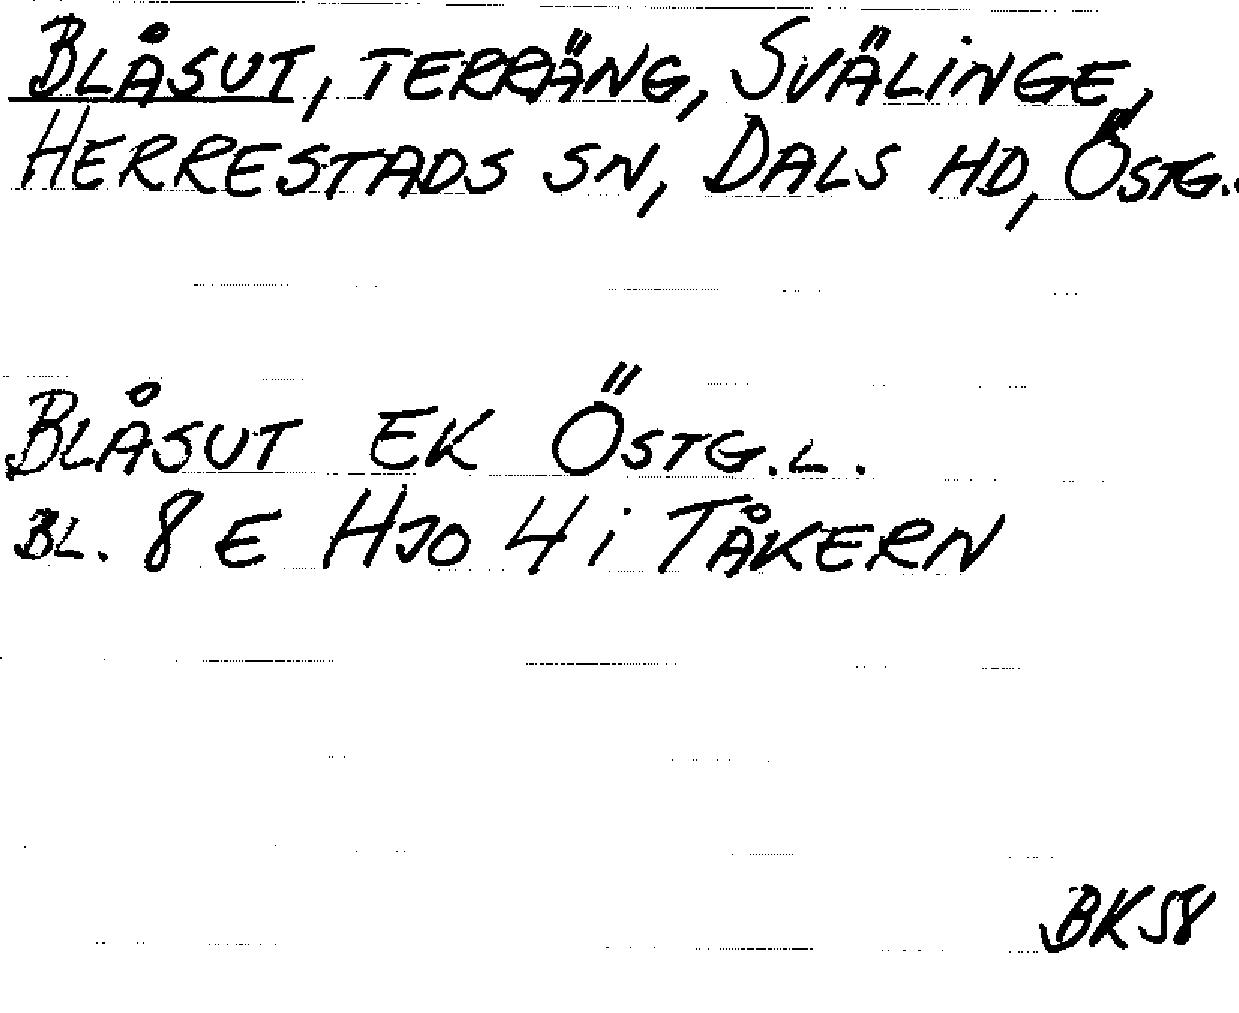 BLÅSUT, TERRÄNG, SVÄLINGE,
HERRESTADS SN, DALS HD, ÖSTG..
BLÅSUT EK ÖSTG.L.
BL. 8 E HJO 4 i TÅKERN
BK58